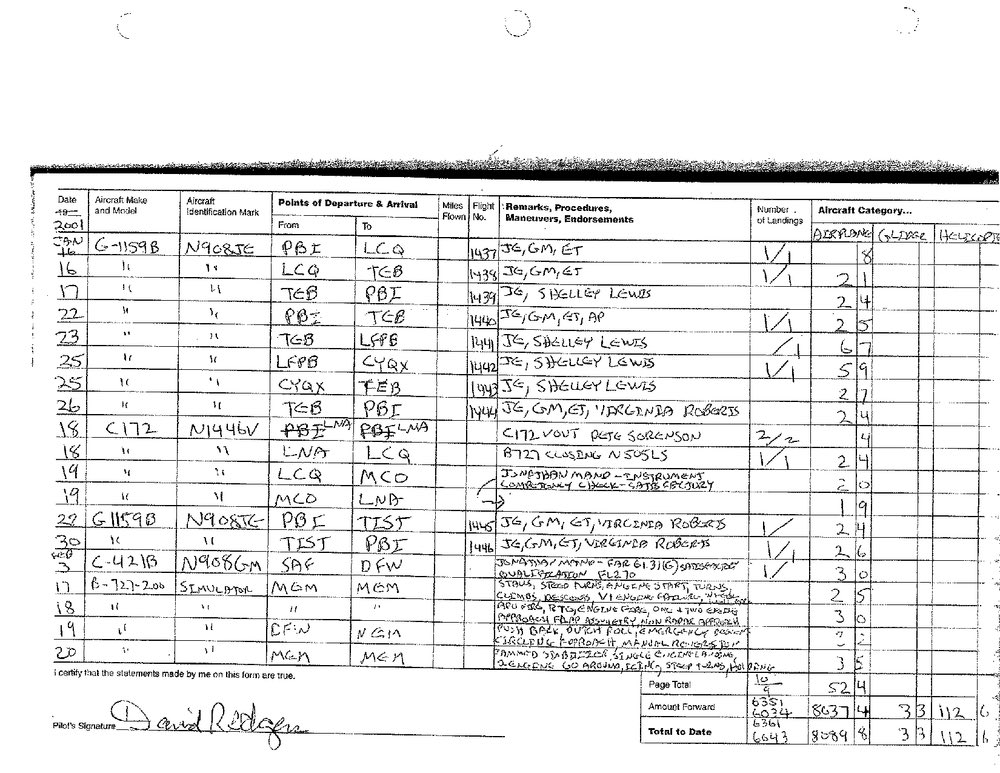 Date Aircraft Make and Model Aircraft Identification Mark Points of Departure & Arrival Miles Flown Flight No. Remarks, Procedures, Maneuvers, Endorsements Number of Landings Aircraft Category...
19 2001 From To AIRPLANE GLIDER HELICOPTE
JAN 16 G-1159B N908JE PBI LCQ 1437 JE, GM, ET 1/1 8
16 " " LCQ TEB 1438 JE, GM, ET 1/1 2 1
17 " " TEB PBI 1439 JE, SHELLEY LEWIS 2 4
22 " " PBI TEB 1440 JE, GM, ET, AP 1/1 2 5
23 " " TEB LFPB 1441 JE, SHELLEY LEWIS /1 6 7
25 " " LFPB CYQX 1442 JE, SHELLEY LEWIS 1/1 5 9
25 " " CYQX TEB 1443 JE, SHELLEY LEWIS 2 7
26 " " TEB PBI 1444 JE, GM, ET, VIRGINIA ROBERTS 2 4
18 C172 N1446V PBI LNA PBI LNA C172 VOUT PETE SORENSON 2/2 4
18 " " LNA LCQ B727 CLOSING N505LS 1/1 2 4
19 " " LCQ MCO JONATHAN MANO - INSTRUMENT COMPETENCY CHECK - SATISFACTORY 2 0
19 " " MCO LNA 1 9
27 G1159B N908JE PBI TIST 1445 JE, GM, ET, VIRGINIA ROBERTS 1/ 2 4
30 " " TIST PBI 1446 JE, GM, ET, VIRGINIA ROBERTS 1/1 2 6
FEB 3 C-421B N908GM SAF DFW JONATHAN MANO - FAR 61.31(G) QUALIFICATION FL270 1/ 3 0
17 B-727-200 SIMULATOR MGM MGM STALLS, STEEP TURNS, ENGINE START, TURNS, CLIMBS, DESCENDS, V1 ENGINE FAILURE, 2 5
18 " " " " APU FIRE, RTO, ENGINE FIRE, ONE & TWO ENGINE APPROACH FLAP ASSYMETRY, NON RADAR APPROACH 3 0
19 " " MGM PUSH BACK, DUTCH ROLL, EMERGENCY DESCENT CIRCLING APPROACH, MANUAL REVERSION
20 " " MGM MGM JAMMED STABILIZER, SINGLE ENGINE LANDING, 2 ENGINE GO AROUND, ICING, STEEP TURNS, HOLDING 3 5
I certify that the statements made by me on this form are true.
Page Total 10/9 52 4
Amount Forward 6351 6034 8037 4 3 3 112 6
Pilot's Signature David Rodgers
Total to Date 6361 6043 8089 8 3 3 112 6